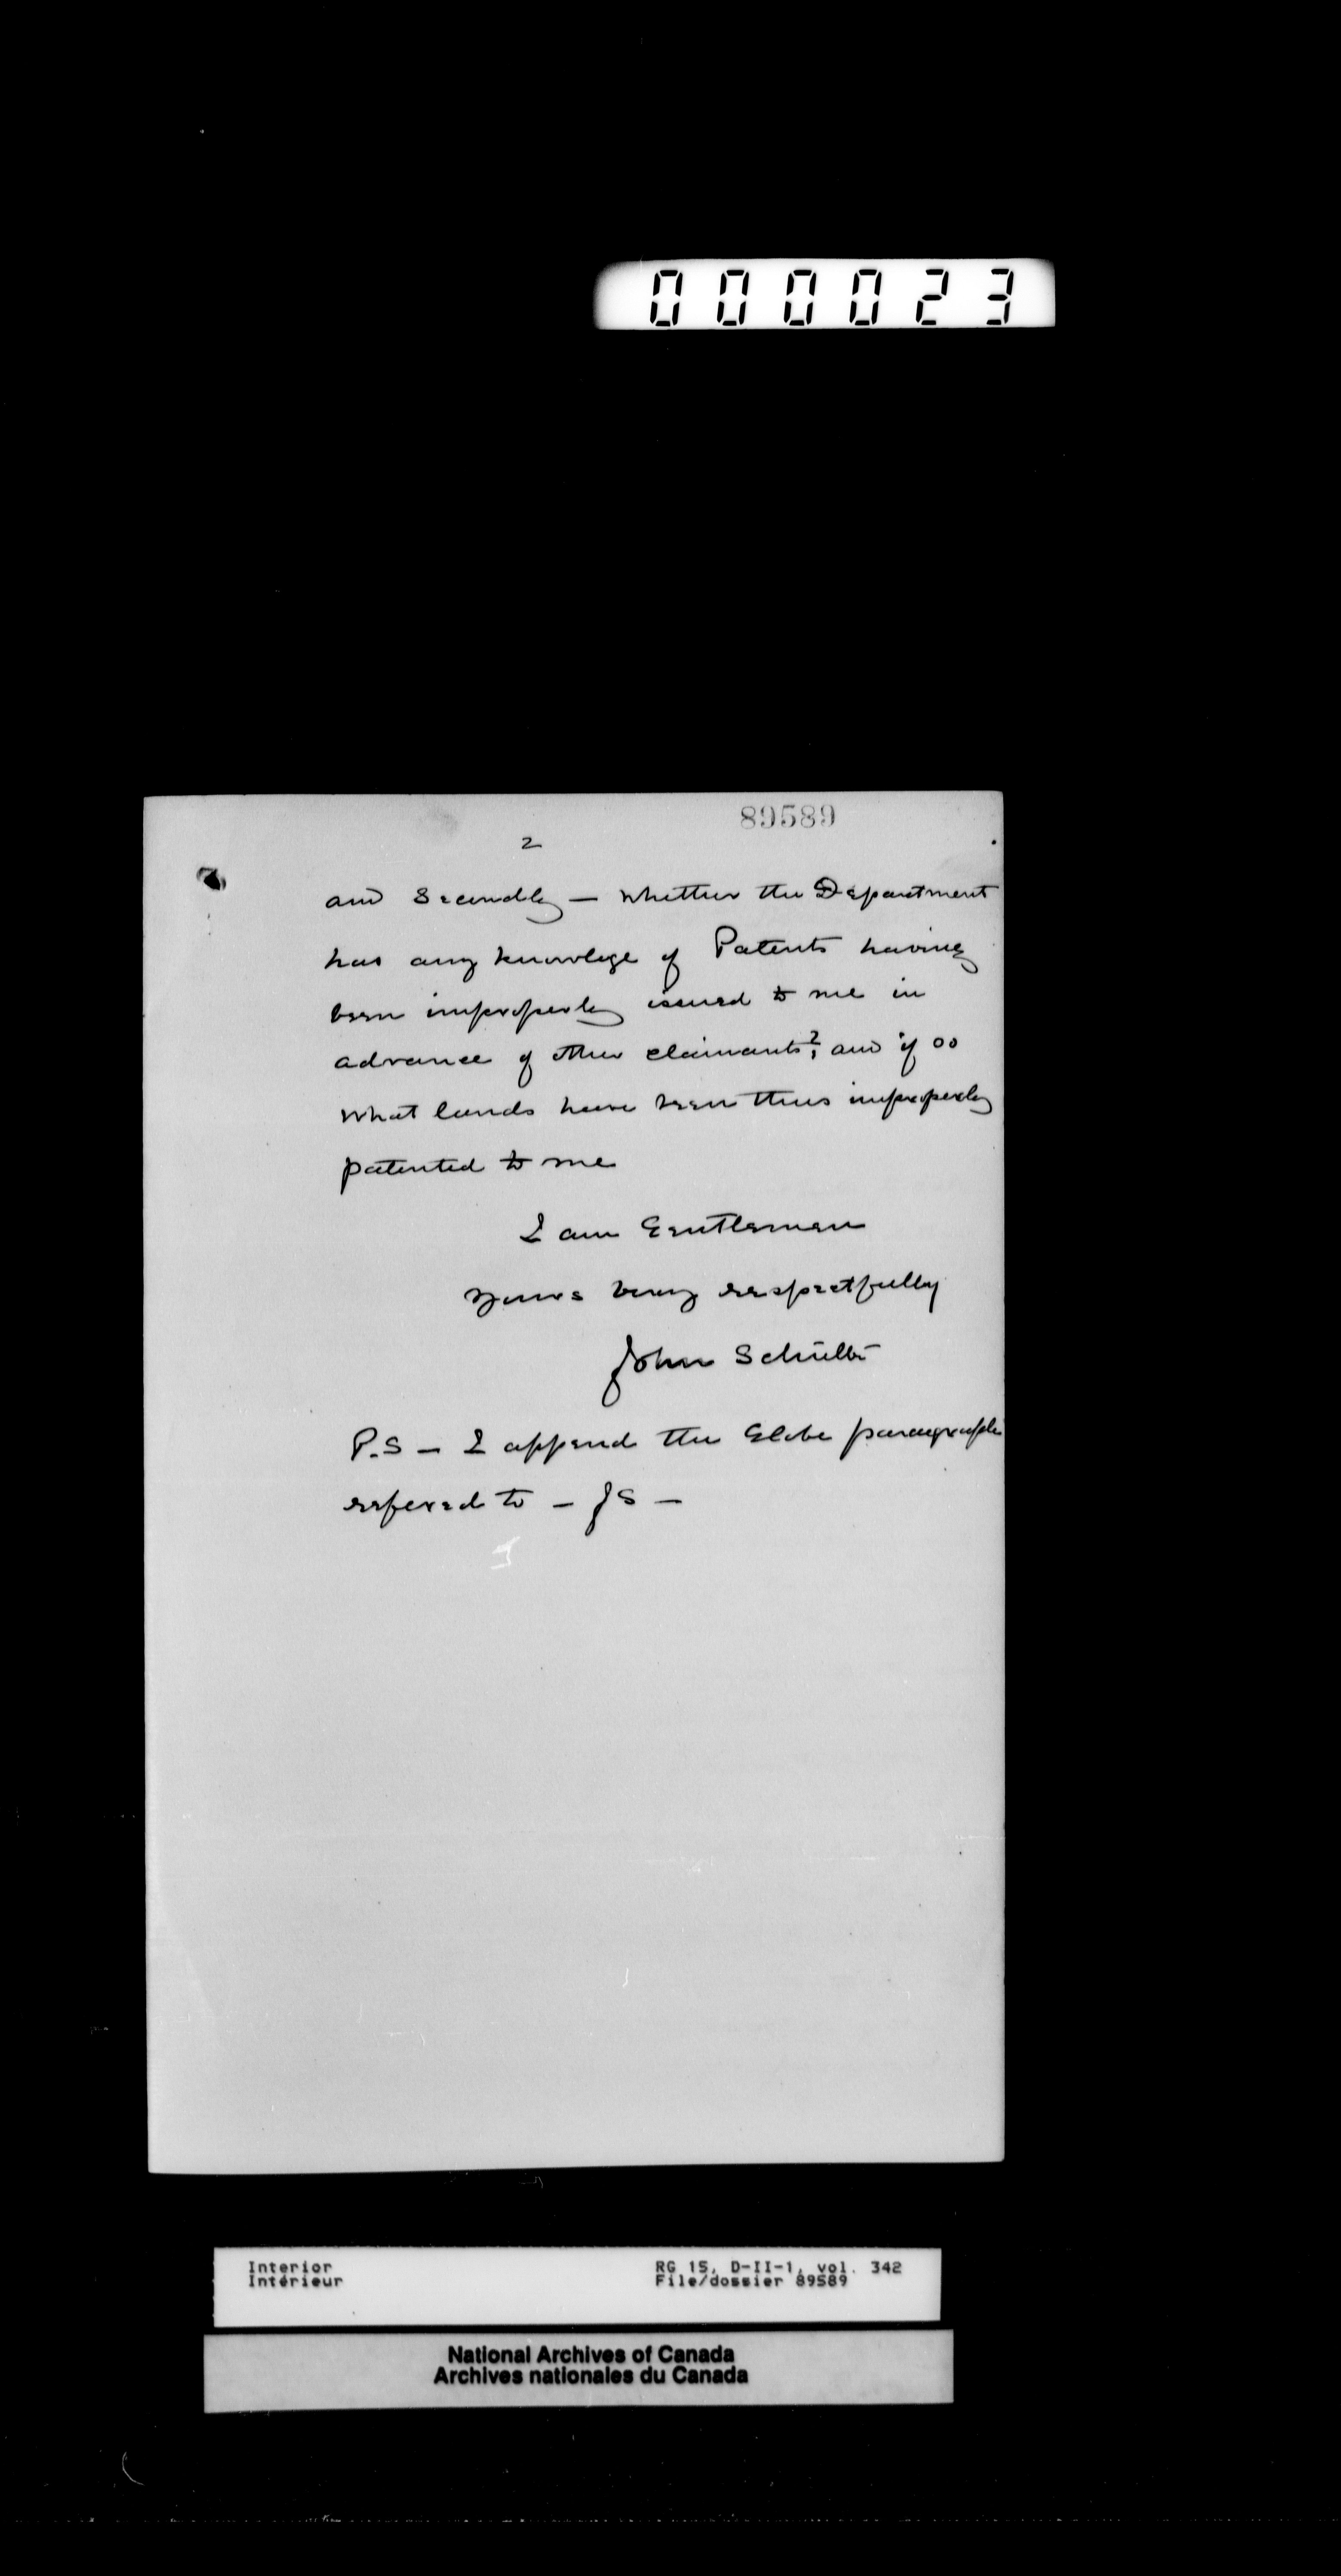 000023
89589
2
and Secondly — Whether the Department
has any knowlege of Patents having
been improperly issued to me in
advance of other claimants?, and if so
What lands have been thus improperly
patented to me
I am Gentlemen
Yours very respectfully
John Schultz
P.S — I append the Globe paragraph
refered to — JS —
Interior
Intérieur
RG 15, D-II-1, vol. 342
File/dossier 89589
National Archives of Canada
Archives nationales du Canada